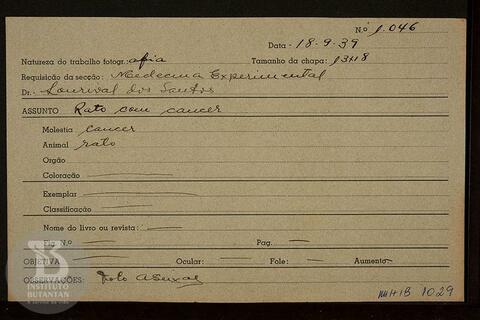 N.o 1.046
Data - 18-9-39
Natureza do trabalho fotogr: afia Tamanho da chapa: 13x18
Requisição da secção: Medecina Experimental
Dr. Lourival dos Santos
ASSUNTO Rato com cancer
Molestia cancer
Animal rato
Orgão
Coloração
Exemplar
Classificação
Nome do livro ou revista:
Fig. N.o Pag.
OBJETIVA Ocular: Fole: Aumento
OBSERVAÇÕES: foto
INSTITUTO
BUTANTAN
A serviço da vida
MHIB 1029